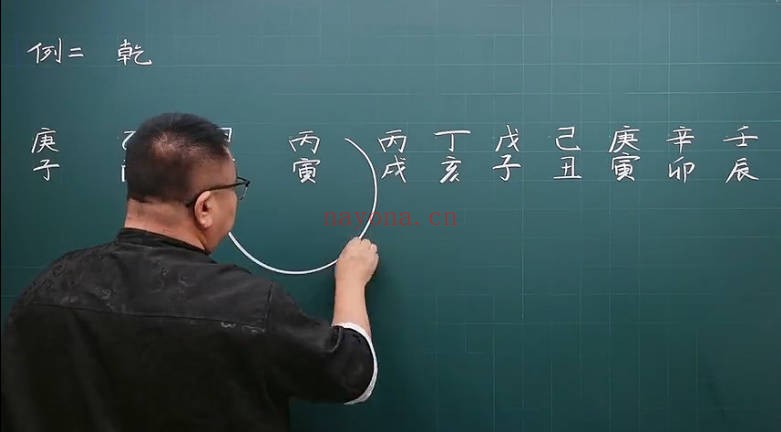 例二 乾
庚 丙 丙 丁 戊 己 庚 辛 壬
子 寅 戌 亥 子 丑 寅 卯 辰
nayona.cn